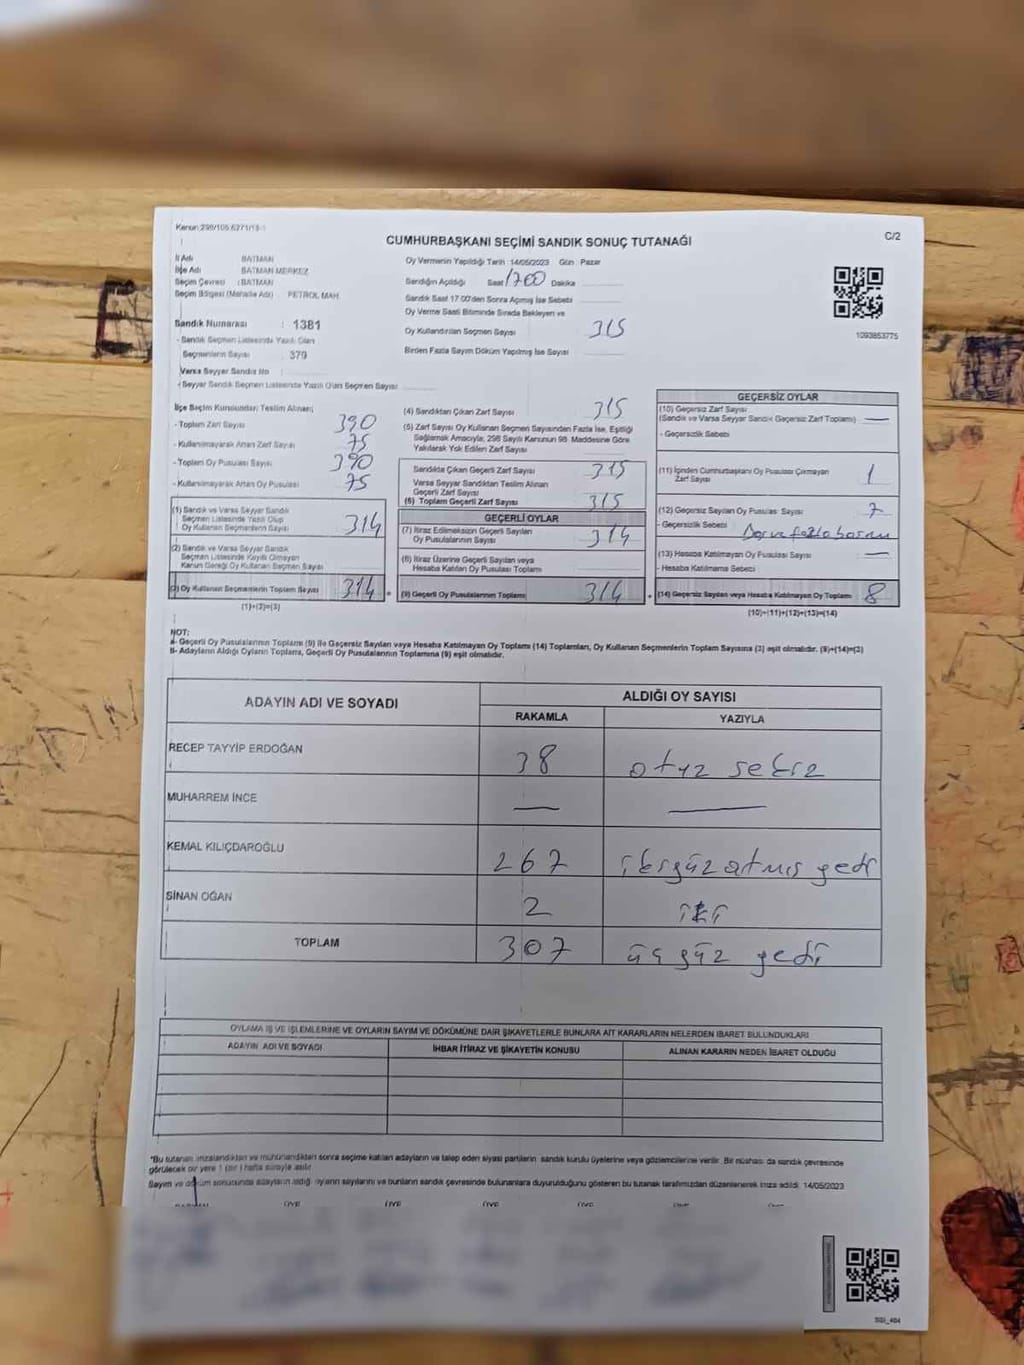 Kanun:298/105,6271/19-1
CUMHURBAŞKANI SEÇİMİ SANDIK SONUÇ TUTANAĞI
C/2
İl Adı BATMAN
İlçe Adı BATMAN MERKEZ
Seçim Çevresi : BATMAN
Seçim Bölgesi (Mahalle Adı) PETROL MAH.
Sandık Numarası : 1381
- Sandık Seçmen Listesinde Yazılı Olan
Seçmenlerin Sayısı : 379
Varsa Seyyar Sandık No :
- Seyyar Sandık Seçmen Listesinde Yazılı Olan Seçmen Sayısı
Oy Vermenin Yapıldığı Tarih :14/05/2023 Gün : Pazar
Sandığın Açıldığı Saat 1700 Dakika
Sandık Saat 17.00'den Sonra Açılmış İse Sebebi
Oy Verme Saati Bitiminde Sırada Bekleyen ve
Oy Kullandırılan Seçmen Sayısı 315
Birden Fazla Sayım Döküm Yapılmış İse Sayısı
1093853775
İlçe Seçim Kurulundan Teslim Alınan;
- Toplam Zarf Sayısı 390
- Kullanılmayarak Artan Zarf Sayısı 75
- Toplam Oy Pusulası Sayısı 390
- Kullanılmayarak Artan Oy Pusulası 75
(1) Sandık ve Varsa Seyyar Sandık
Seçmen Listesinde Yazılı Olup
Oy Kullanan Seçmenlerin Sayısı 314
(2) Sandık ve Varsa Seyyar Sandık
Seçmen Listesinde Kayıtlı Olmayan
Kanun Gereği Oy Kullanan Seçmen Sayısı
(3) Oy Kullanan Seçmenlerin Toplam Sayısı 314
(1)+(2)=(3)
(4) Sandıktan Çıkan Zarf Sayısı 315
(5) Zarf Sayısı Oy Kullanan Seçmen Sayısından Fazla İse, Eşitliği
Sağlamak Amacıyla, 298 Sayılı Kanunun 98. Maddesine Göre
Yakılarak Yok Edilen Zarf Sayısı
Sandıkta Çıkan Geçerli Zarf Sayısı 315
Varsa Seyyar Sandıktan Teslim Alınan
Geçerli Zarf Sayısı
(6) Toplam Geçerli Zarf Sayısı 315
GEÇERLİ OYLAR
(7) İtiraz Edilmeksizin Geçerli Sayılan
Oy Pusulalarının Sayısı 314
(8) İtiraz Üzerine Geçerli Sayılan veya
Hesaba Katılan Oy Pusulası Toplamı
(9) Geçerli Oy Pusulalarının Toplamı 314
GEÇERSİZ OYLAR
(10) Geçersiz Zarf Sayısı
(Sandık ve Varsa Seyyar Sandık Geçersiz Zarf Toplamı) —
- Geçersizlik Sebebi
(11) İçinden Cumhurbaşkanı Oy Pusulası Çıkmayan
Zarf Sayısı 1
(12) Geçersiz Sayılan Oy Pusulası Sayısı 7
- Geçersizlik Sebebi
(13) Hesaba Katılmayan Oy Pusulası Sayısı —
- Hesaba Katılmama Sebebi
(14) Geçersiz Sayılan veya Hesaba Katılmayan Oy Toplamı 8
(10)+(11)+(12)+(13)=(14)
NOT:
a- Geçerli Oy Pusulalarının Toplamı (9) ile Geçersiz Sayılan veya Hesaba Katılmayan Oy Toplamı (14) Toplamları, Oy Kullanan Seçmenlerin Toplam Sayısına (3) eşit olmalıdır. (9)+(14)=(3)
B- Adayların Aldığı Oyların Toplamı, Geçerli Oy Pusulalarının Toplamına (9) eşit olmalıdır.
ADAYIN ADI VE SOYADI
ALDIĞI OY SAYISI
RAKAMLA YAZIYLA
RECEP TAYYİP ERDOĞAN 38 otuz sekiz
MUHARREM İNCE — —
KEMAL KILIÇDAROĞLU 267 ikiyüz atmış yedi
SİNAN OĞAN 2 iki
TOPLAM 307 üç yüz yedi
OYLAMA İŞ VE İŞLEMLERİNE VE OYLARIN SAYIM VE DÖKÜMÜNE DAİR ŞİKAYETLERLE BUNLARA AİT KARARLARIN NELERDEN İBARET BULUNDUKLARI
ADAYIN ADI VE SOYADI İHBAR İTİRAZ VE ŞİKAYETİN KONUSU ALINAN KARARIN NEDEN İBARET OLDUĞU
*Bu tutanak imzalandıktan ve mühürlendikten sonra seçime katılan adayların ve talep eden siyasi partilerin sandık kurulu üyelerine veya gözlemcilerine verilir. Bir nüshası da sandık çevresinde
görülecek bir yere 1 (bir) hafta süreyle asılır.
Sayım ve döküm sonucunda adayların aldığı oyların sayılarını ve bunların sandık çevresinde bulunanlara duyurulduğunu gösteren bu tutanak tarafımızdan düzenlenerek imza edildi. 14/05/2023
BAŞKAN ÜYE ÜYE ÜYE ÜYE ÜYE ÜYE